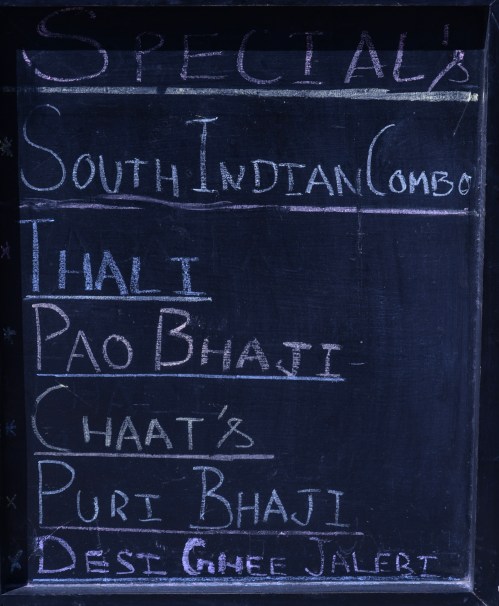 SPECIAL'S
SOUTH INDIAN COMBO
THALI
PAO BHAJI
CHAAT'S
PURI BHAJI
DESI GHEE JALEBI